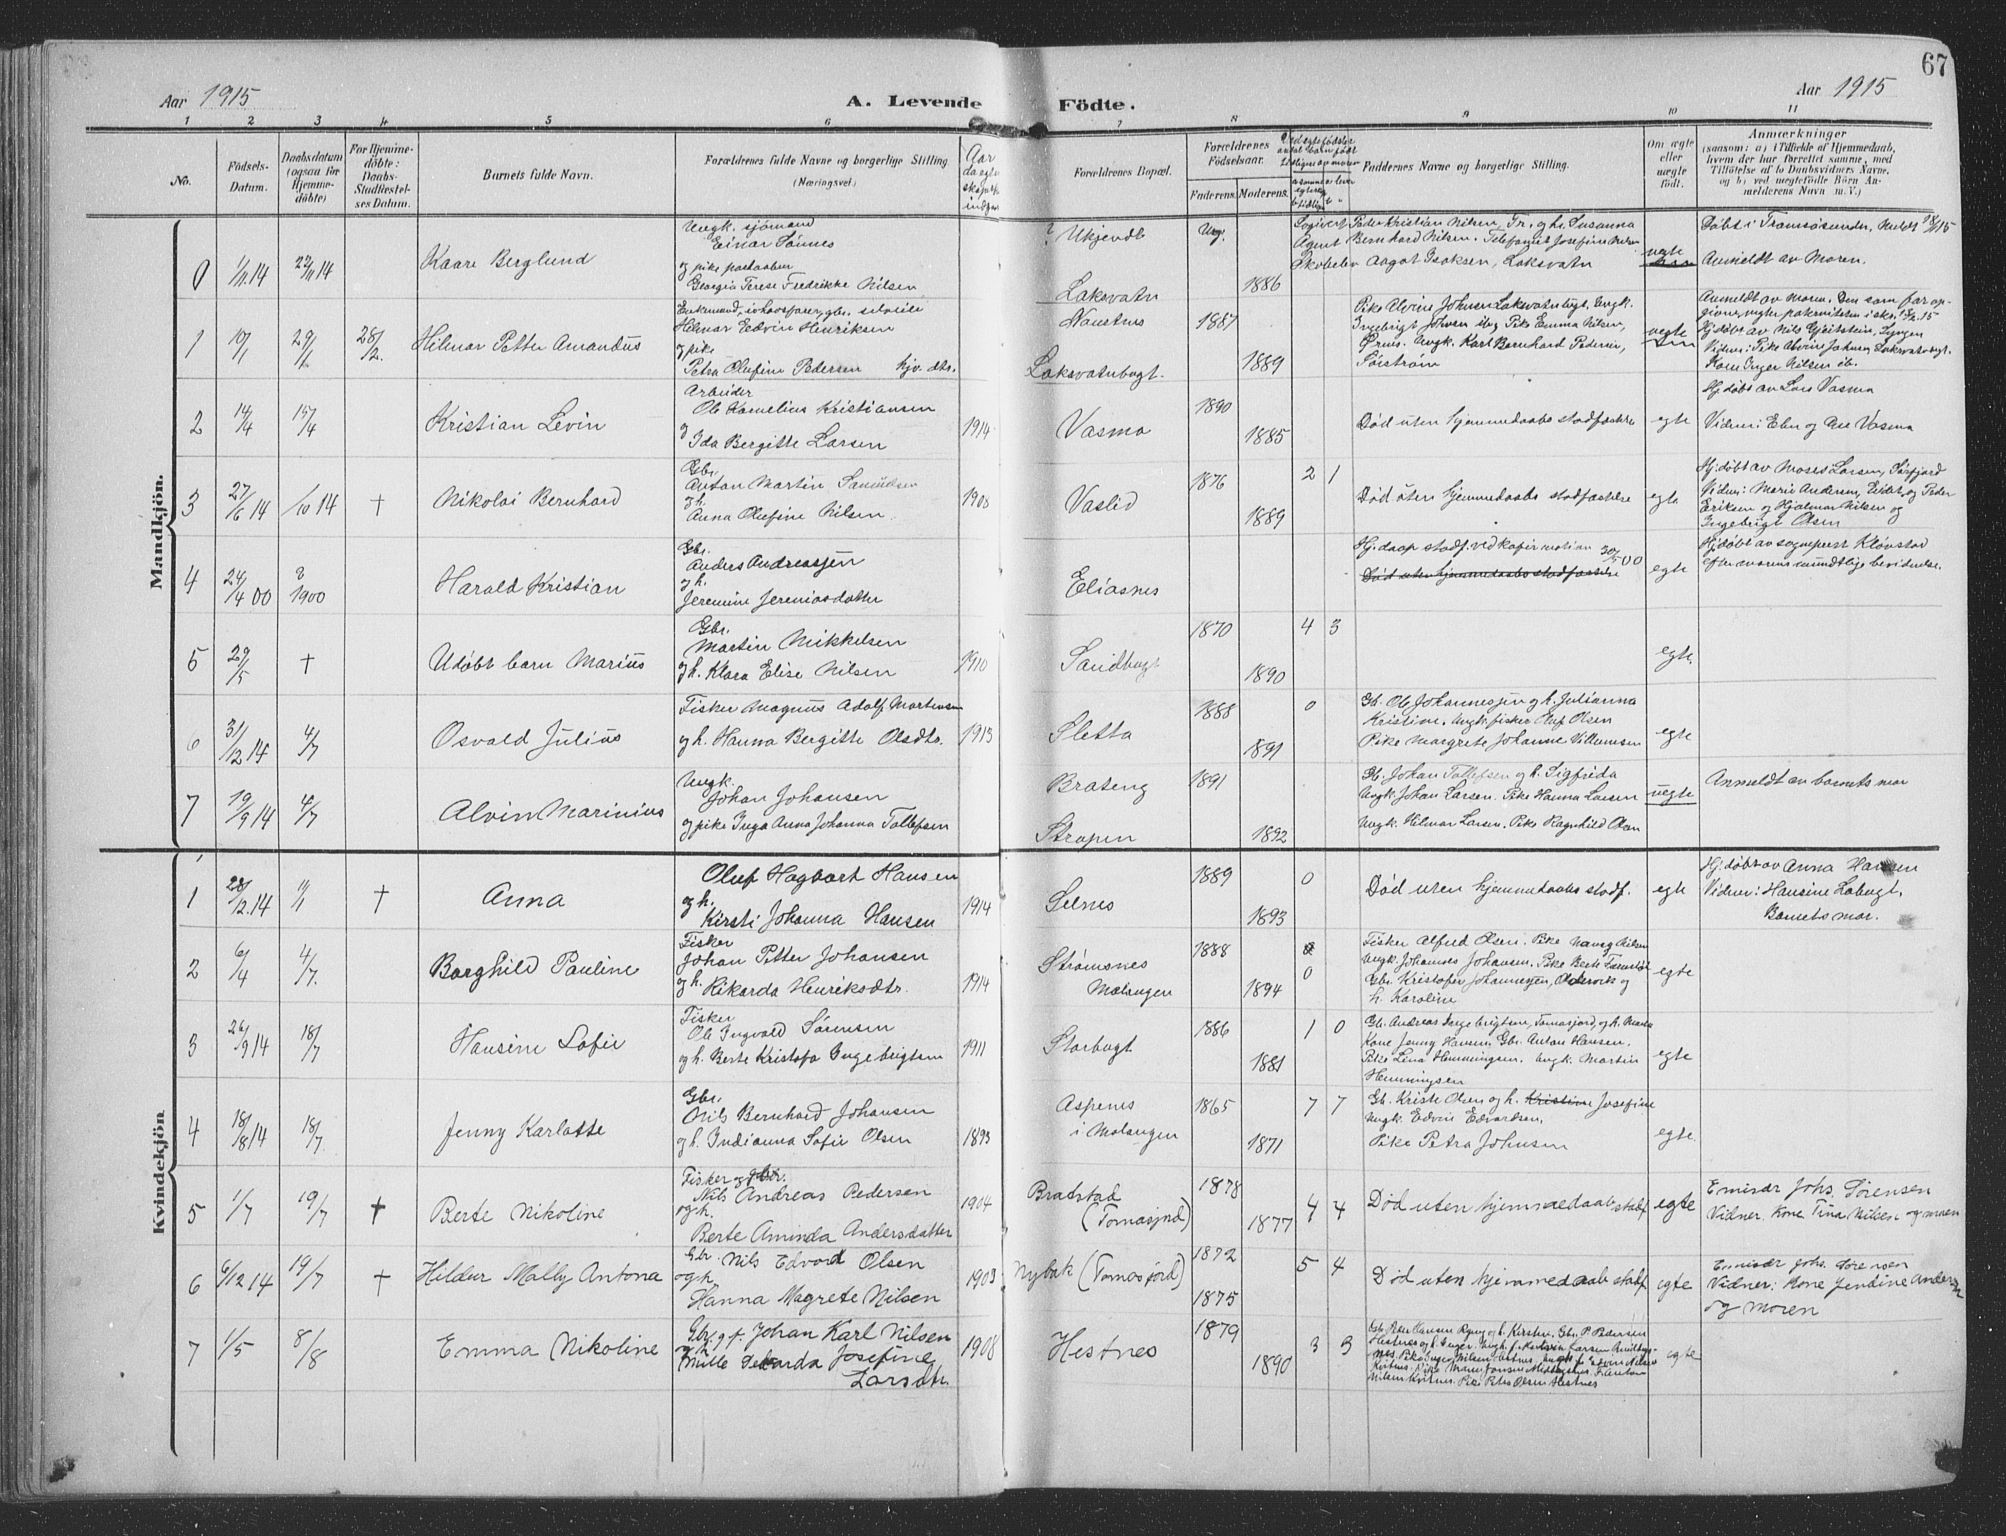 67
Aar 1915
A. Levende
Födte.
Aar 1915
1 2 3 4 5 6 7 8 9 10 11
No.
Födsels-
Datum.
Daabsdatum
(ogsaa for
Hjemme-
döbte)
For Hjemme-
döbte:
Daabs-
Stadfæstel-
ses Datum.
Barnets fulde Navn.
Forældrenes fulde Navne og borgerlige Stilling
(Næringsvei.)
Aar
Forældrenes Bopæl.
Forældrenes
Födselsaar.
Faderens. Moderens.
Faddernes Navne og borgerlige Stilling.
Om ægte
eller
uægte
födt.
Anmærkninger
(saasom: a) i Tilfælde af Hjemmedaab,
hvem der har forrettet samme, med
Tilföielse af to Daabsvidners Navne,
og b) ved uægtefödte Börn An-
melderens Navn m. V.)
Mandkjön.
0 1/11.14 22/11 14 Kaare Berglund
Ungk. sjømand
Einar Sønnes
og pike
Georgia Terese Fredrikke Nilsen
? Ukjendt
Laksvatn
Ug.
1886
Peder Kristian Nilsen, Fr. og h. Susanna
Agent Bernhard Nilsen. Telefonist Josefine Nilsen
Aagot Isaksen, Laksvatn
uegte
Døbt i Tromsøsundet, meldt
Anmeldt av Moren.
1 10/1 29/1 28/2. Hilmar Petter Amandus
Enkemand,
Helmer Edvin Henriksen
og pike
Petra Olufine Pedersen
Naustnes
Laksvatnbugt.
1887
1889
Pike Alvine Johnsen Laksvatnbugt, Ungk.
Ingebrigt Johnsen ibg Pike Emma Nilsen,
Ørnes. Ungk. Karl Bernhard Pedersen,
Seistrøm
uegte
Anmeldt av Moren. Den som far op-
given, negter paterniteten i skr. 15/2.15
Hj. døbt av Nils Greitstein, Lyngen
Vidner: Pike Alvine Johnsen, Laksvatnbugt.
Kone Inger Nilsen ib.
2 14/4 15/4 Kristian Levin
Arbeider
Ole Kornelius Kristiansen
og
Ida Bergitte Larsen
1914
Vasmo
1890
1885
Død uten hjemmedaabs stadfæstelse
egte
Hj. døbt av Lars Vasmo
Vidner: Eben og Ane Vasmo
3 27/6 14 /10 14 † Nikolai Bernhard
Gbr.
Anton Martin Samuelsen
og h.
Anna Olufine Nilsen.
1900
Vaslid
1876
1889
2 1
Død uten hjemmedaabs stadfæstelse
egte
Hj. døbt av Moses Larsen, Sørfjord
Vidner: Marie Andersen, Eidet, og Peder
Eriksen og Hjalmar Nilsen og
Ingebrigt Olsen
4 24/4 00 ? 1900 Harald Kristian
Gbr.
Anders Andreassen
og h.
Jeremine Jeremiasdatter
Eliasnes
Hj. daap stadf. ved konfirmation 30/5 00
Død uten hjemmedaabs stadfæstelse
egte
Hj. døbt av sogneprest Kløvstad
efter morens mundtlige bevidnelse.
5 29/5 † Udøbt barn Marius
Gbr.
Martin Mikkelsen
og h. Klara Elise Nilsen
1910
Sandbugt
1870
1890
4 3
egte.
6 31/12 14 4/7 Osvald Julius
Fisker Magnus Adolf Mortensen
og h. Hanna Bergitte Olsdtr.
1913
Sletta
1888
1891
0
Gb. Ole Johannessen og h. Julianna
Kristine. Ungk. fisker Oluf Olsen
Pike Margrete Johanne Villumsen
egte
7 19/9 14 4/7 Alvin Marinius
Ungk.
Johan Johansen
og pike Inga Anna Johanna Tollefsen
Brateng
Strupen
1891
1892
Gb. Johan Tollefsen og h. Sigfrida
Ungk. Johan Larsen. Pike Hanna Larsen
Ungk. Hilmar Larsen. Pike Ragnhild Olsen
uegte
Anmeldt av barnets mor
Kvindekjön.
1 28/12.14 1/1 † Anna
Oluf Hagbart Hansen
og h.
Kirsti Johanna Hansen
1914
Selnes
1889
1893
0
Død uten hjemmedaabs stadf.
egte
Hj. døbt av Anna Hansen
Vidner: Hansine Løbugt,
Barnets mor.
2 6/4 4/7. Borghild Pauline
Fisker
Johan Petter Johansen
og h. Rikarda Henriksdtr.
1914
Strømsnes
Malangen
1888
1894
0
Fisker Alfred Olsen. Pike Nanny Nilsen
Ungk. Johannes Johansen. Pike Berte
Gbr. Kristofer Johannessen, Oldervik og
h. Karoline
egte
3 26/9 14 18/7 Hansine Sofie
Fisker
Ole Ingvald Sørensen
og h. Berte Kristofa Ingebrigtsen
1911
Storbugt
1886
1881
1 0
Gb. Andreas Ingebrigtsen, Tomasjord, og h. Maria
Kone Jenny Hansen, Gbr. Anton Hansen.
Pike Lina Hemmingsen. Ungk. Martin
Hemmingsen
egte
4 18/8 14 18/7. Jenny Karlotte
Gbr.
Nils Bernhard Johansen
og h. Indianna Sofie Olsen
1893
Aspenes
i Malangen
1865
1871
7 7
Gb. Kriste Olsen og h. Kristine Josefine
Ungk. Edvin Edvardsen.
Pike Petra Johnsen
egte.
5 1/7 19/7 † Berte Nikoline
Fisker og gbr.
Nils Andreas Pedersen
og h.
Berte Aminda Andersdatter
1904
Bratstad
(Tomasjord)
1878
1877
4 4
Død uten hjemmedaab stadf
egte
Emisær Johs. Sørensen
Vidner. Kone Tina Nilsen og moren
6 6/12 14 19/7 † Hildur Mally Antona
Gbr. Nils Edvard Olsen
og h.
Hanna Magrete Nilsen
1903
Nybak (Tomasjord)
1872
1875
5 4
Død uten hjemmedaab stadf
egte
Emisær Johs. Sørensen
Vidner: Kone Jendine Andersen
og moren
7 1/5 8/8 Emma Nikoline
Gbr. og f. Johan Karl Nilsen
og h.
Josefine
Larsdtr.
1908
Hestnes
1879
1890
3 3
egte